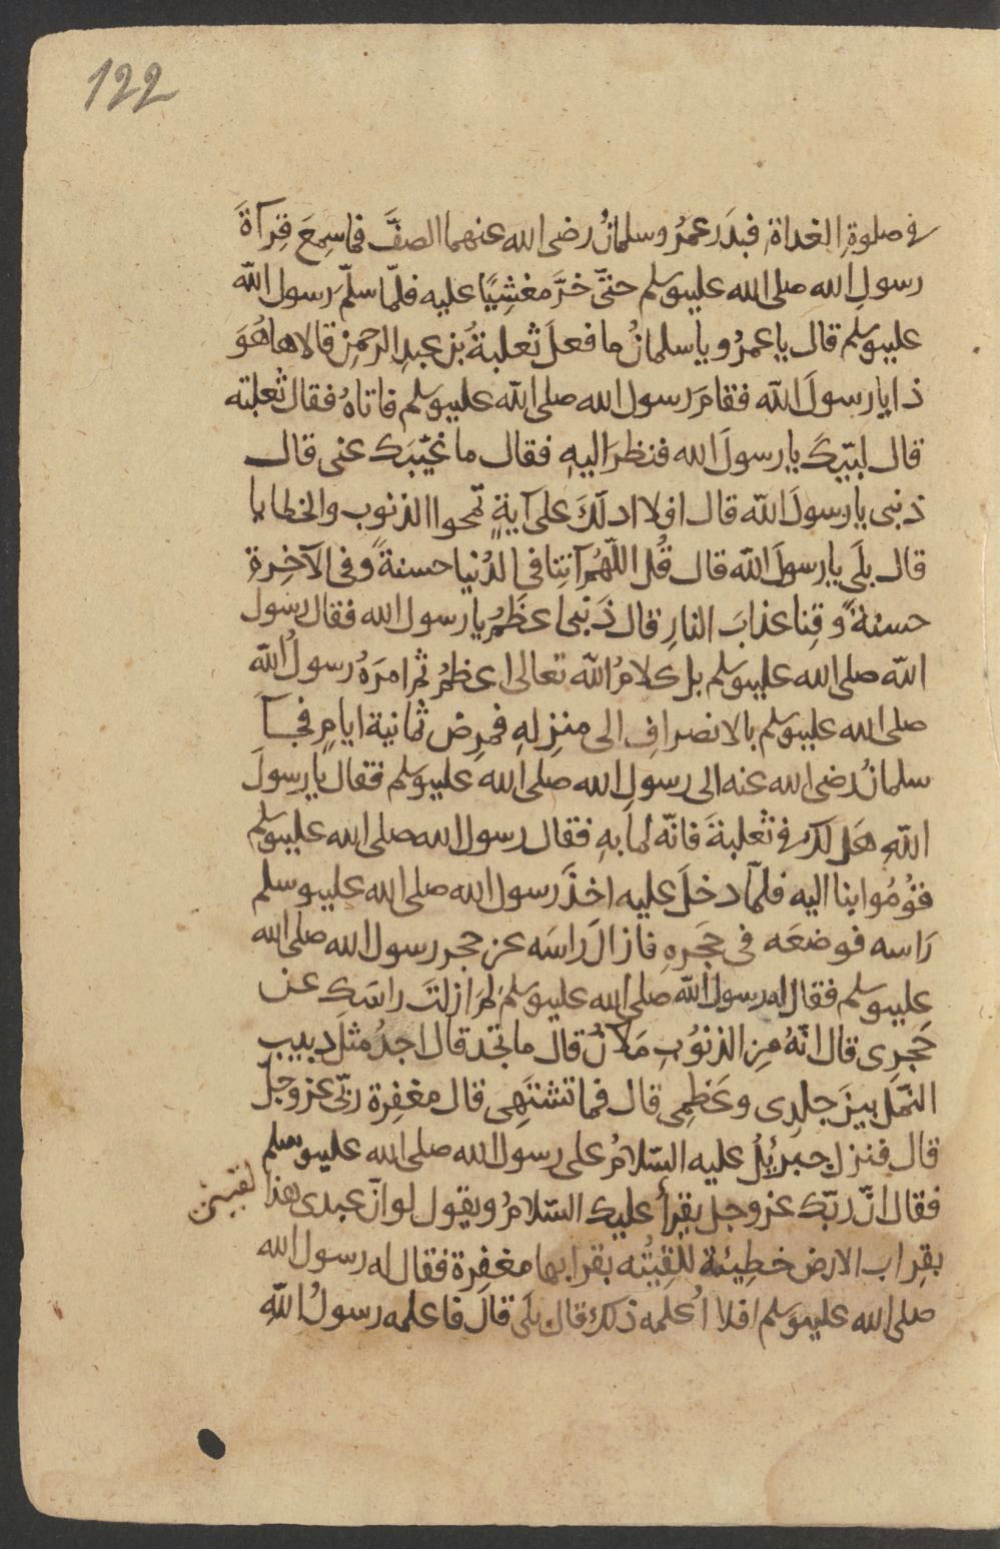 122
فى صلوةِ الغداة فبدَر عمرُ وسلمانُ رضى الله عنهما الصفَّ فماسمِعَ قِرآةَ
رسولِ الله صلى الله عليه وسلم حتىّ خرَّ مغشِيًّا عليه فلمّا سلّم رسول الله
عليه وسلم قال ياعمرُ ويا سلمانُ ما فعلَ ثعلبةُ بن عبدِ الرحمنِ قالا هاهُوَ
ذا يا رسولَ الله فقامَ رسول الله صلى الله عليه وسلم فاتاهُ فقال ثعلبته
قال لبّيك يا رسولَ الله فنظرَ اليهِ فقال ما غيّبك عنى قال
ذنبى يا رسولَ الله قال افلا ادلّك على آيةٍ تمحوا الذنوب والخطايا
قال بلَى يا رسولَ الله قال قُل اللّهُمّ آتِنا فى الدُنيا حسنةً وفى الآخِرةِ
حسنةً وقِنا عذابَ النارِ قال ذَنبى اعظَمُ يا رسول الله فقال رسول
الله صلى الله عليه وسلم بل كلامُ الله تعالى اعظمُ ثم امرَهُ رسولُ الله
صلى الله عليه وسلم بالانصرافِ الى منزِلِهِ فمرِض ثمانية ايامٍ فجآ
سلمانُ رضى الله عنه الى رسولِ الله صلى الله عليه وسلم فقال يا رسولَ
اللهِ هَل لك فى ثعلبةَ فانّه لمابهِ فقال رسول الله صلى الله عليه وسلم
فقُومُوا بنا اليه فلمّا دخلَ عليه اخذَ رسول الله صلى الله عليه وسلم
رَاسه فوضعَه فى حَجَرهِ فازالَ راسَه عن حجر رسول الله صلى الله
عليه وسلم فقال له رسول الله صلى الله عليه وسلم لمَ ازلتَ راسَك عن
حَجرِى قال انّهُ مِن الذنُوبِ مَلآنٌ قال ما تجد قال اجدُ مثلَ دبيب
النّمل بينَ جلدِى وعَظمِى قال فما تشتَهِى قال مغفِرة ربّى عزوجلّ
قال فنزل جبرئيلُ عليه السّلامُ على رسول الله صلى الله عليه وسلم
فقال انّ ربّك عزوجل يقرأ عليك السّلامُ ويقول لوانّ عبدى هذا لقينى
بقِراب الارض خطِيئة للقِيتُه بقرابها مغفِرة فقال له رسول الله
صلى الله عليه وسلم افلا اُعلمه ذلك قال بلَى قالَ فاعلمه رسولُ اللهِ